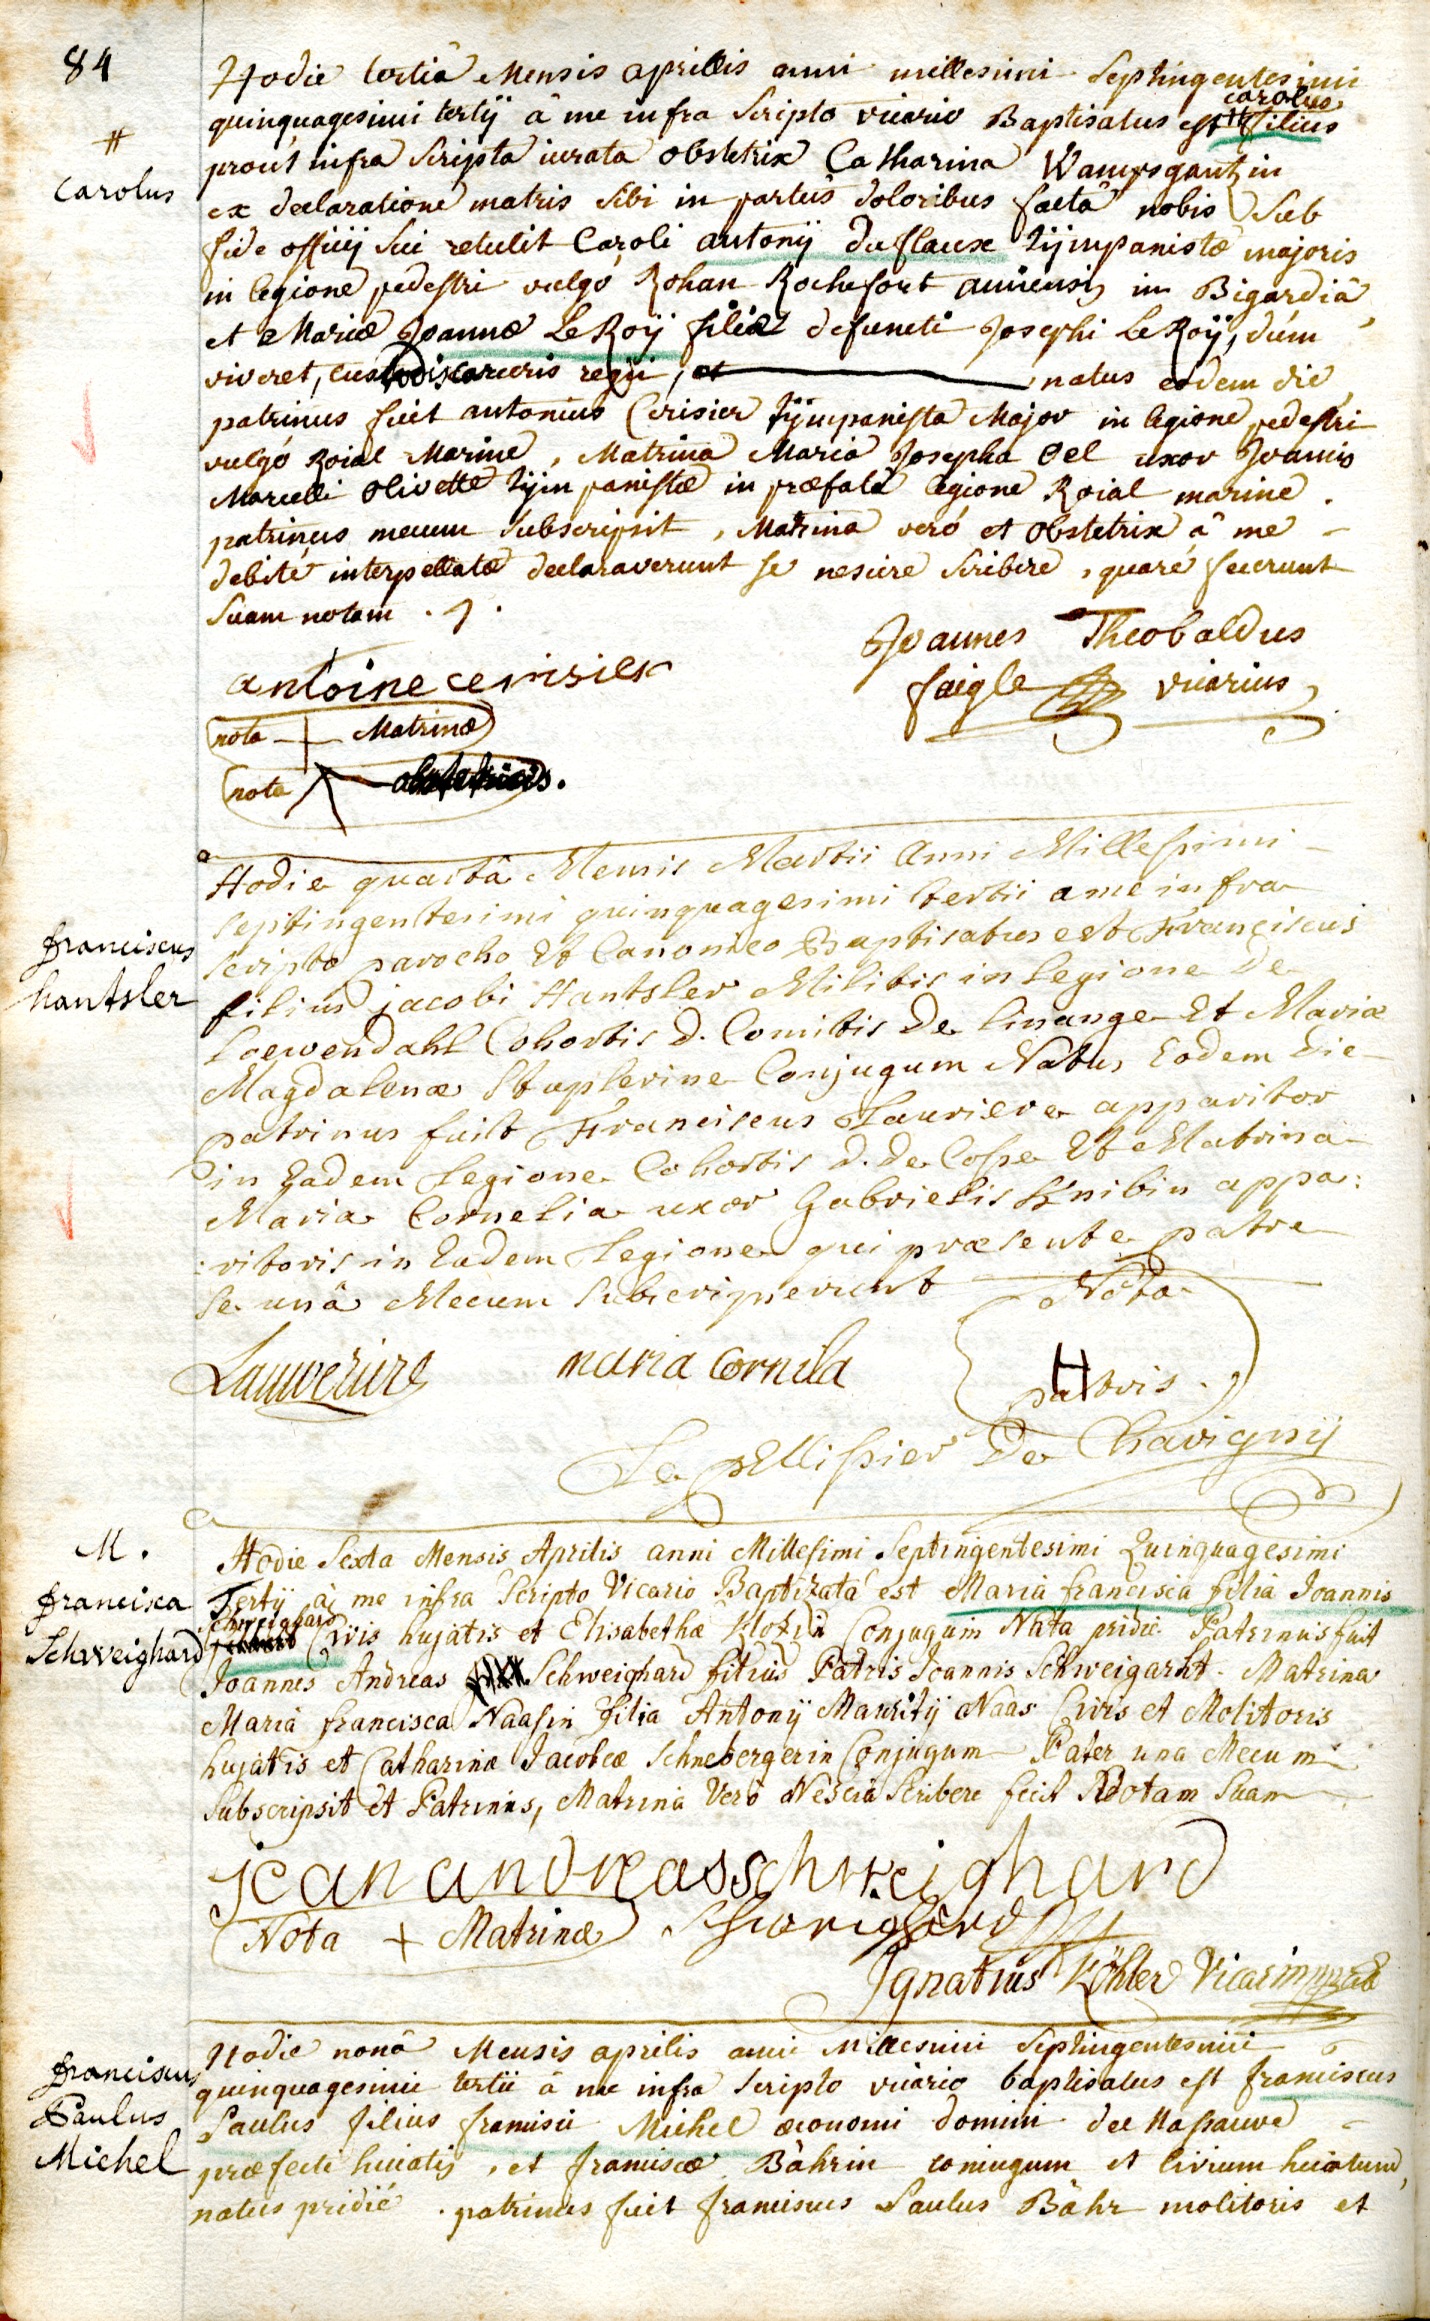 84
Hodie tertiâ Mensis aprilis anni millesimi Septingentesimi
quinquagesimi tertÿ â me infra Scripto vicario Baptisatus est # filius
carolus
#
Carolus
proút infra Scripta iurata obstetrix Catharina Wampsgantzin
ex declaratione matris sibi in partus doloribus factâ nobis Sub
fide officÿ Sui retulit Caroli antonÿ duflaux tÿmpanistæ majoris
in legione pedestri vulgó Rohan Rochefort in Bigardiâ
et Mariæ Joannæ LeRoÿ filiæ defuncti Josephi LeRoÿ, dúm
viveret, custodis carceris regii, et natus eodem die
patrinus fuit antonius Cerisier tÿmpanista Major in legione pedestri
vulgó Roial Marine, Matrina Maria Josepha Oel uxor Joannis
Marcelli Olivette tÿmpanistæ in præfatâ legione Roial marine.
patrinus mecum Subscripsit, Matrina veró et obstetrix â me
debité interpellatæ declaraverunt se nescire Scribere, quaré fecerunt
Suam notam.
Joannes Theobaldus
faigle vicarius
antoine cerisier
nota + Matrinæ
nota obstetricis.
Hodie quartâ Mensis Martii Anni Millesimi
Septingentesimi quinquagesimi tertii a me infra
franciscus
hantsler
scripto parocho Et Canonico Baptisatus est Franciscus
filius jacobi Hantsler Militis in legione De
Loewendahl Cohortis D. Comitis De linange Et Mariæ
Magdalenæ Stuplerine Conjugum Natus Eodem Die
patrinus fuit Franciscus Lauriere apparitor
in Eadem Legione Cohortis d. de Cosse Et Matrina
Maria Cornelia uxor Gabrielis Knibin appa:
:ritoris in Eadem Legione qui præsente patre
se unâ Mecum Subscripserunt
Nota
H
patris.
maria Cornila
Le pellissier De Chavignÿ
M.
francisca
Schweighard
Hodie Sexta Mensis Aprilis anni Millesimi Septingentesimi Quinquagesimi
Tertÿ à me infra Scripto Vicario Baptizata est Maria francisca filia Joannis
Schweighard
Civis hujatis et Elisabethæ Klotzin Conjugum Nata pridie Patrinus fuit
Joannes Andreas Schweighard filius Patris Joannis Schweigarht. Matrina
Maria francisca Naasin filia Antonÿ Mauritÿ Naas Civis et Molitoris
hujatis et Catharinæ Jacobeæ Schnebergerin Conjugum Pater una Mecum
Subscripsit et Patrinus, Matrina Vero Nescia Scribere fecit Notam Suam
jean andreas schweighard
Nota + Matrinæ
Schweighard
Ignatius Köhler Vicarius
franciscus
Paulus
Michel
Hodie nonâ Mensis aprilis anni Millesimi Septingentesimi
quinquagesimi tertii â me infra Scripto vicario baptisatus est franciscus
Paulus filius francisci Michel œconomi domini
præfecti huiatis, et franciscæ Bährin coniugum et civium huiatum,
natus pridié. patrinus fuit franciscus Paulus Bähr molitoris et